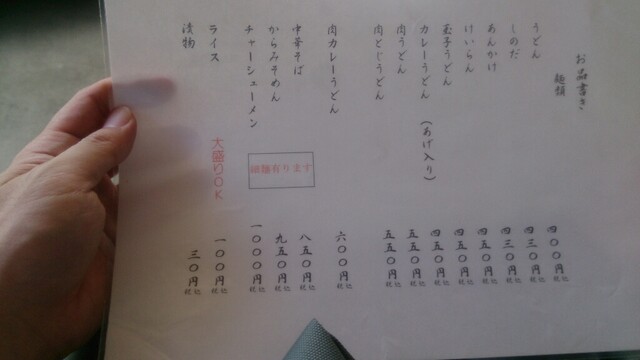 お品書き
麺類
うどん 四〇〇円税込
しのだ 四三〇円税込
あんかけ 四三〇円税込
けいらん 四五〇円税込
玉子うどん 四五〇円税込
カレーうどん（あげ入り） 四五〇円税込
肉うどん 五五〇円税込
肉とじうどん 五五〇円税込
肉カレーうどん 六〇〇円税込
中華そば 八五〇円税込
からみそめん 九五〇円税込
チャーシューメン 一〇〇〇円税込
細麺有ります
ライス 大盛りOK 一〇〇円税込
漬物 三〇円税込